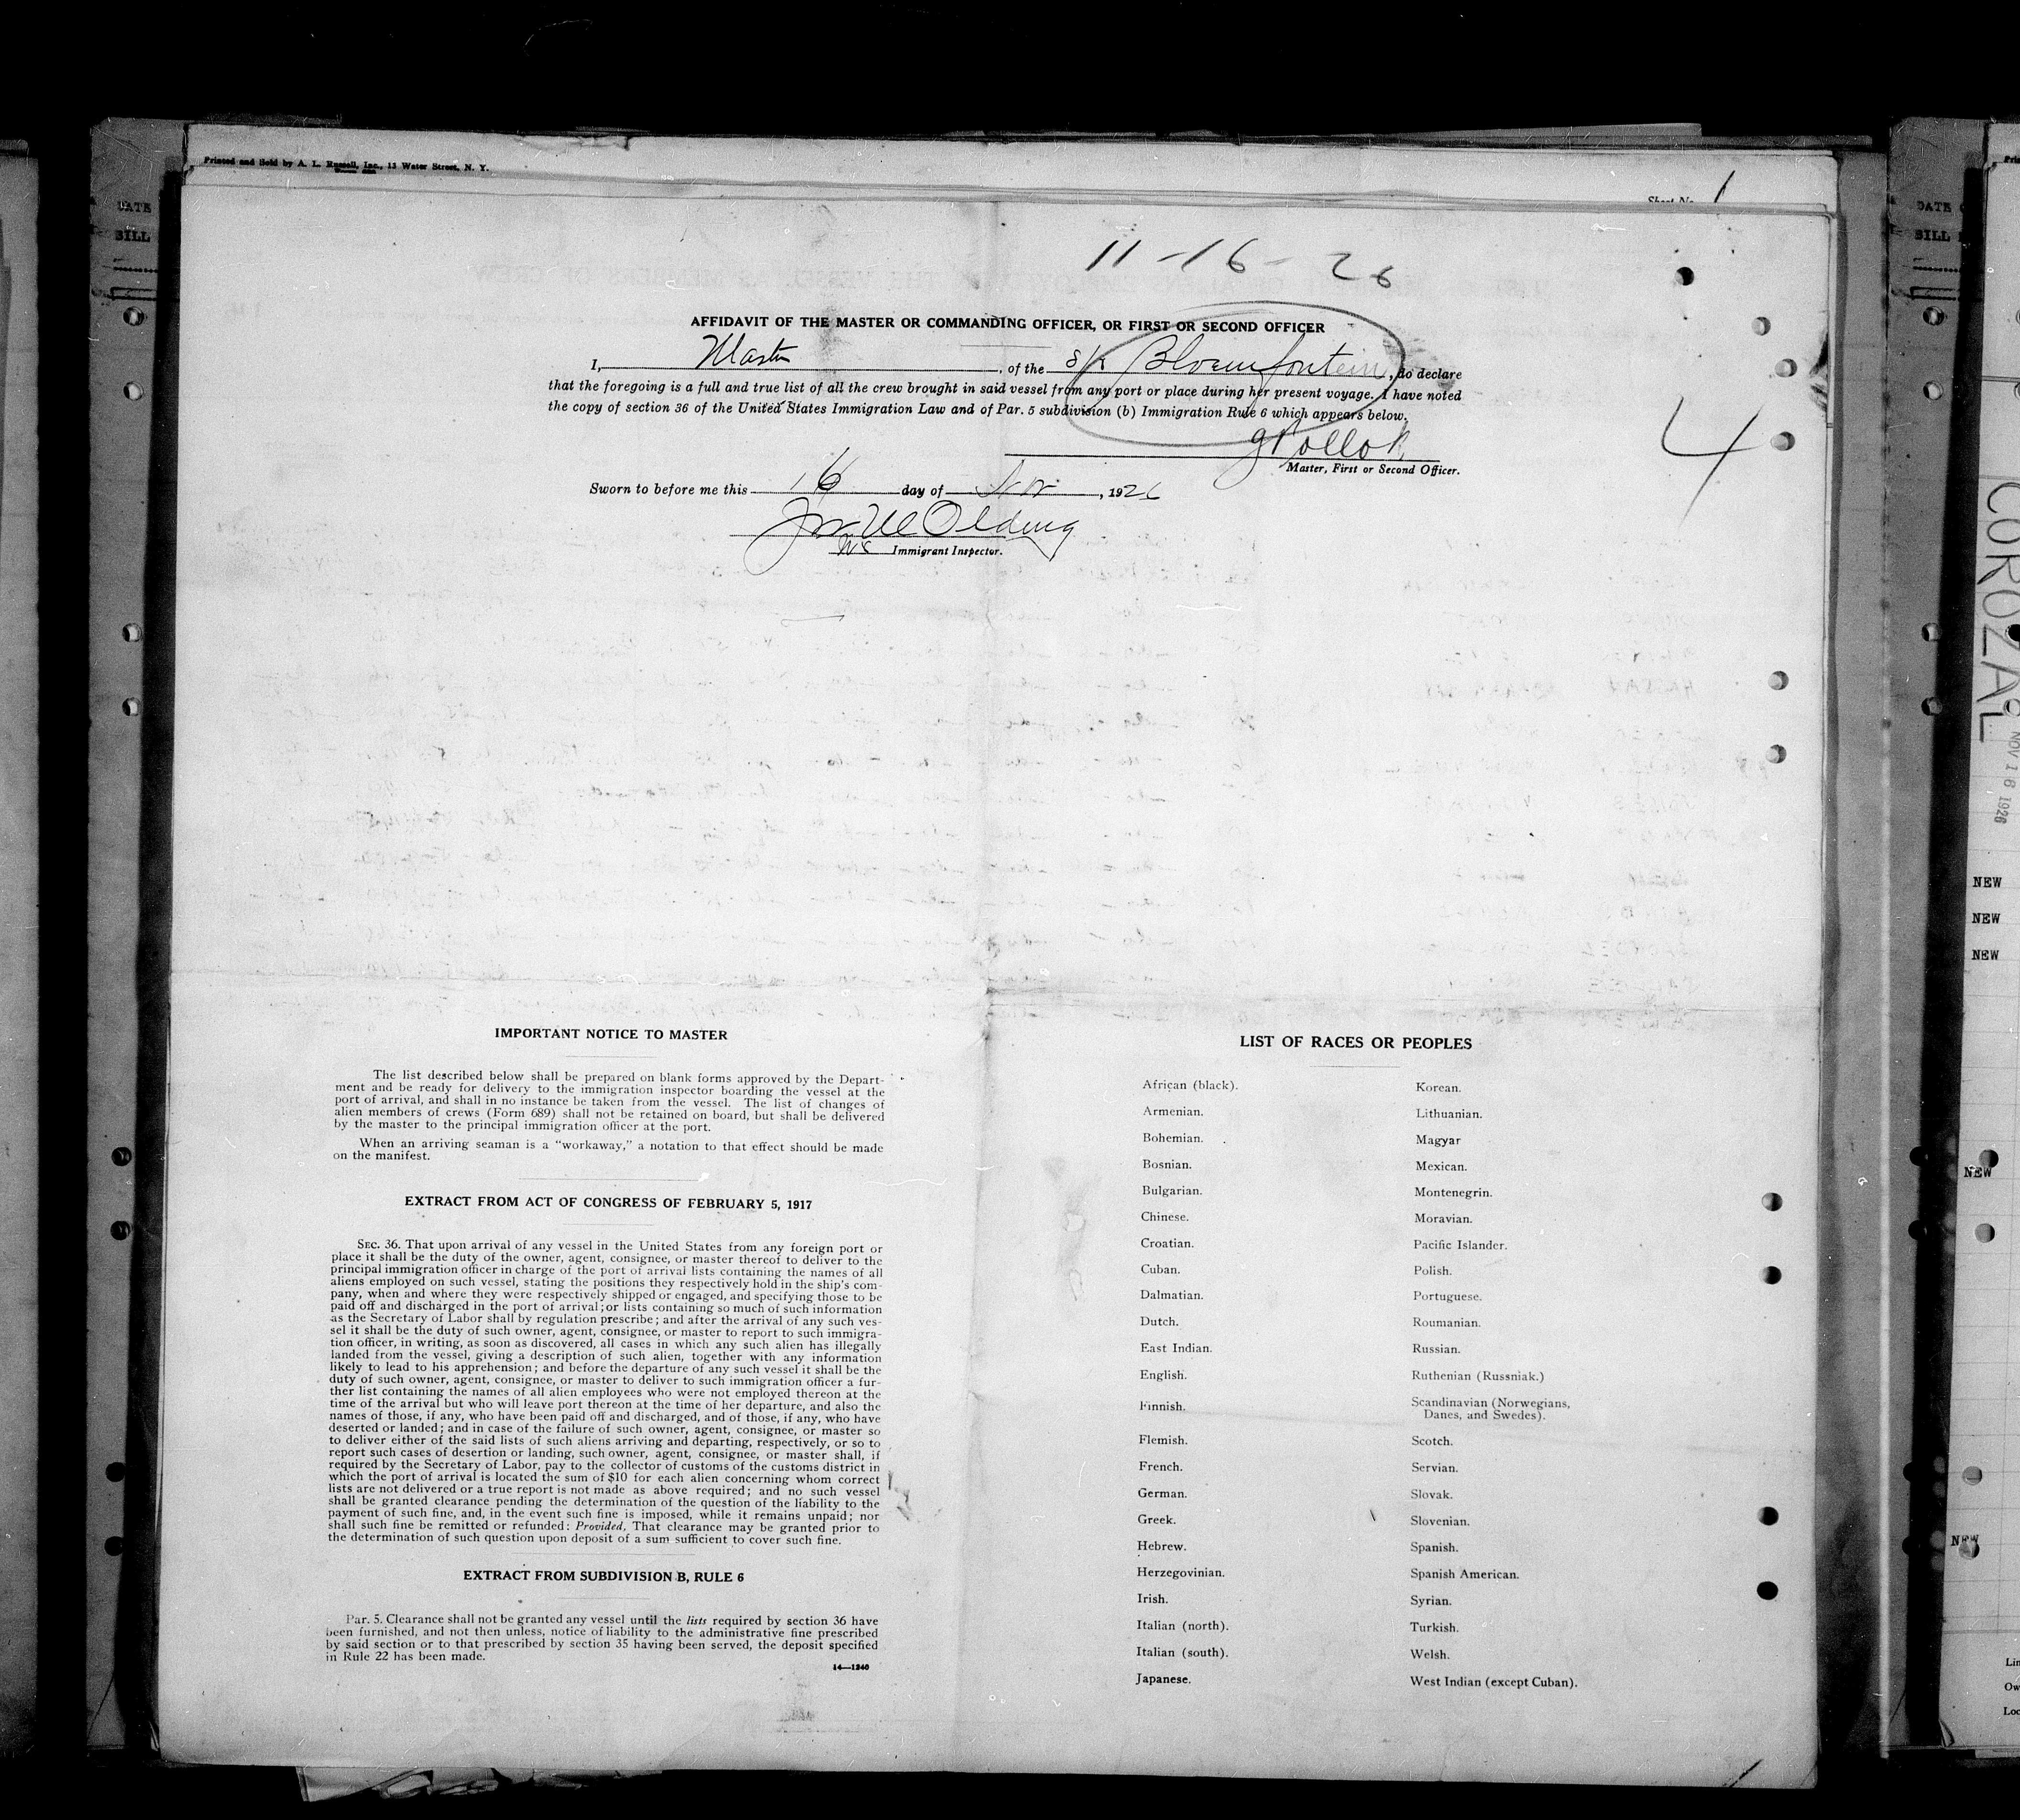 Printed and Sold by A. L. Russell, Inc., 13 Water Street, N. Y.
Sheet No. 1
11-16-26
AFFIDAVIT OF THE MASTER OR COMMANDING OFFICER, OR FIRST OR SECOND OFFICER
I, Master, of the S/S Bloemfontein, do declare
that the foregoing is a full and true list of all the crew brought in said vessel from any port or place during her present voyage. I have noted
the copy of section 36 of the United States Immigration Law and of Par. 5 subdivision (b) Immigration Rule 6 which appears below.
4
Master, First or Second Officer.
Sworn to before me this 16 day of Nov, 1926
Immigrant Inspector.
IMPORTANT NOTICE TO MASTER
The list described below shall be prepared on blank forms approved by the Depart-
ment and be ready for delivery to the immigration inspector boarding the vessel at the
port of arrival, and shall in no instance be taken from the vessel. The list of changes of
alien members of crews (Form 689) shall not be retained on board, but shall be delivered
by the master to the principal immigration officer at the port.
When an arriving seaman is a "workaway," a notation to that effect should be made
on the manifest.
EXTRACT FROM ACT OF CONGRESS OF FEBRUARY 5, 1917
SEC. 36. That upon arrival of any vessel in the United States from any foreign port or
place it shall be the duty of the owner, agent, consignee, or master thereof to deliver to the
principal immigration officer in charge of the port of arrival lists containing the names of all
aliens employed on such vessel, stating the positions they respectively hold in the ship's com-
pany, when and where they were respectively shipped or engaged, and specifying those to be
paid off and discharged in the port of arrival; or lists containing so much of such information
as the Secretary of Labor shall by regulation prescribe; and after the arrival of any such ves-
sel it shall be the duty of such owner, agent, consignee, or master to report to such immigra-
tion officer, in writing, as soon as discovered, all cases in which any such alien has illegally
landed from the vessel, giving a description of such alien, together with any information
likely to lead to his apprehension; and before the departure of any such vessel it shall be the
duty of such owner, agent, consignee, or master to deliver to such immigration officer a fur-
ther list containing the names of all alien employees who were not employed thereon at the
time of the arrival but who will leave port thereon at the time of her departure, and also the
names of those, if any, who have been paid off and discharged, and of those, if any, who have
deserted or landed; and in case of the failure of such owner, agent, consignee, or master so
to deliver either of the said lists of such aliens arriving and departing, respectively, or so to
report such cases of desertion or landing, such owner, agent, consignee, or master shall, if
required by the Secretary of Labor, pay to the collector of customs of the customs district in
which the port of arrival is located the sum of $10 for each alien concerning whom correct
lists are not delivered or a true report is not made as above required; and no such vessel
shall be granted clearance pending the determination of the question of the liability to the
payment of such fine, and, in the event such fine is imposed, while it remains unpaid; nor
shall such fine be remitted or refunded: Provided, That clearance may be granted prior to
the determination of such question upon deposit of a sum sufficient to cover such fine.
EXTRACT FROM SUBDIVISION B, RULE 6
Par. 5. Clearance shall not be granted any vessel until the lists required by section 36 have
been furnished, and not then unless, notice of liability to the administrative fine prescribed
by said section or to that prescribed by section 35 having been served, the deposit specified
in Rule 22 has been made.
14—1240
LIST OF RACES OR PEOPLES
African (black).
Armenian.
Bohemian.
Bosnian.
Bulgarian.
Chinese.
Croatian.
Cuban.
Dalmatian.
Dutch.
East Indian.
English.
Finnish.
Flemish.
French.
German.
Greek.
Hebrew.
Herzegovinian.
Irish.
Italian (north).
Italian (south).
Japanese.
Korean.
Lithuanian.
Magyar
Mexican.
Montenegrin.
Moravian.
Pacific Islander.
Polish.
Portuguese.
Roumanian.
Russian.
Ruthenian (Russniak.)
Scandinavian (Norwegians,
Danes, and Swedes).
Scotch.
Servian.
Slovak.
Slovenian.
Spanish.
Spanish American.
Syrian.
Turkish.
Welsh.
West Indian (except Cuban).
DATE
BILL
DATE
BILL
COROZAL
NOV 16 1926
NEW
NEW
NEW
NEW
NEW